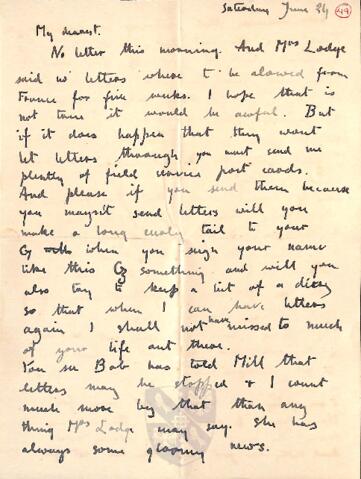 Saturday June 24
49
My dearest.
No letter this morning. And Mrs Lodge
said no letters where to be alowed from
France for five weeks. I hope that is
not true it would be awful. But
if it does happen that they wont
let letters through you must send me
plently of field service post cards.
And please if you send them because
you maysn't send letters will you
make a long curly tail to your
G when you sign your name
like this G something and will you
also try to keep a bit of a diary
so that when I can have letters
again I shall not have missed to much
of your life out there.
You see Bob has told Mill that
letters may be stopped & I count
much more by that than any
thing Mrs Lodge may say. She has
always some gloomy news.